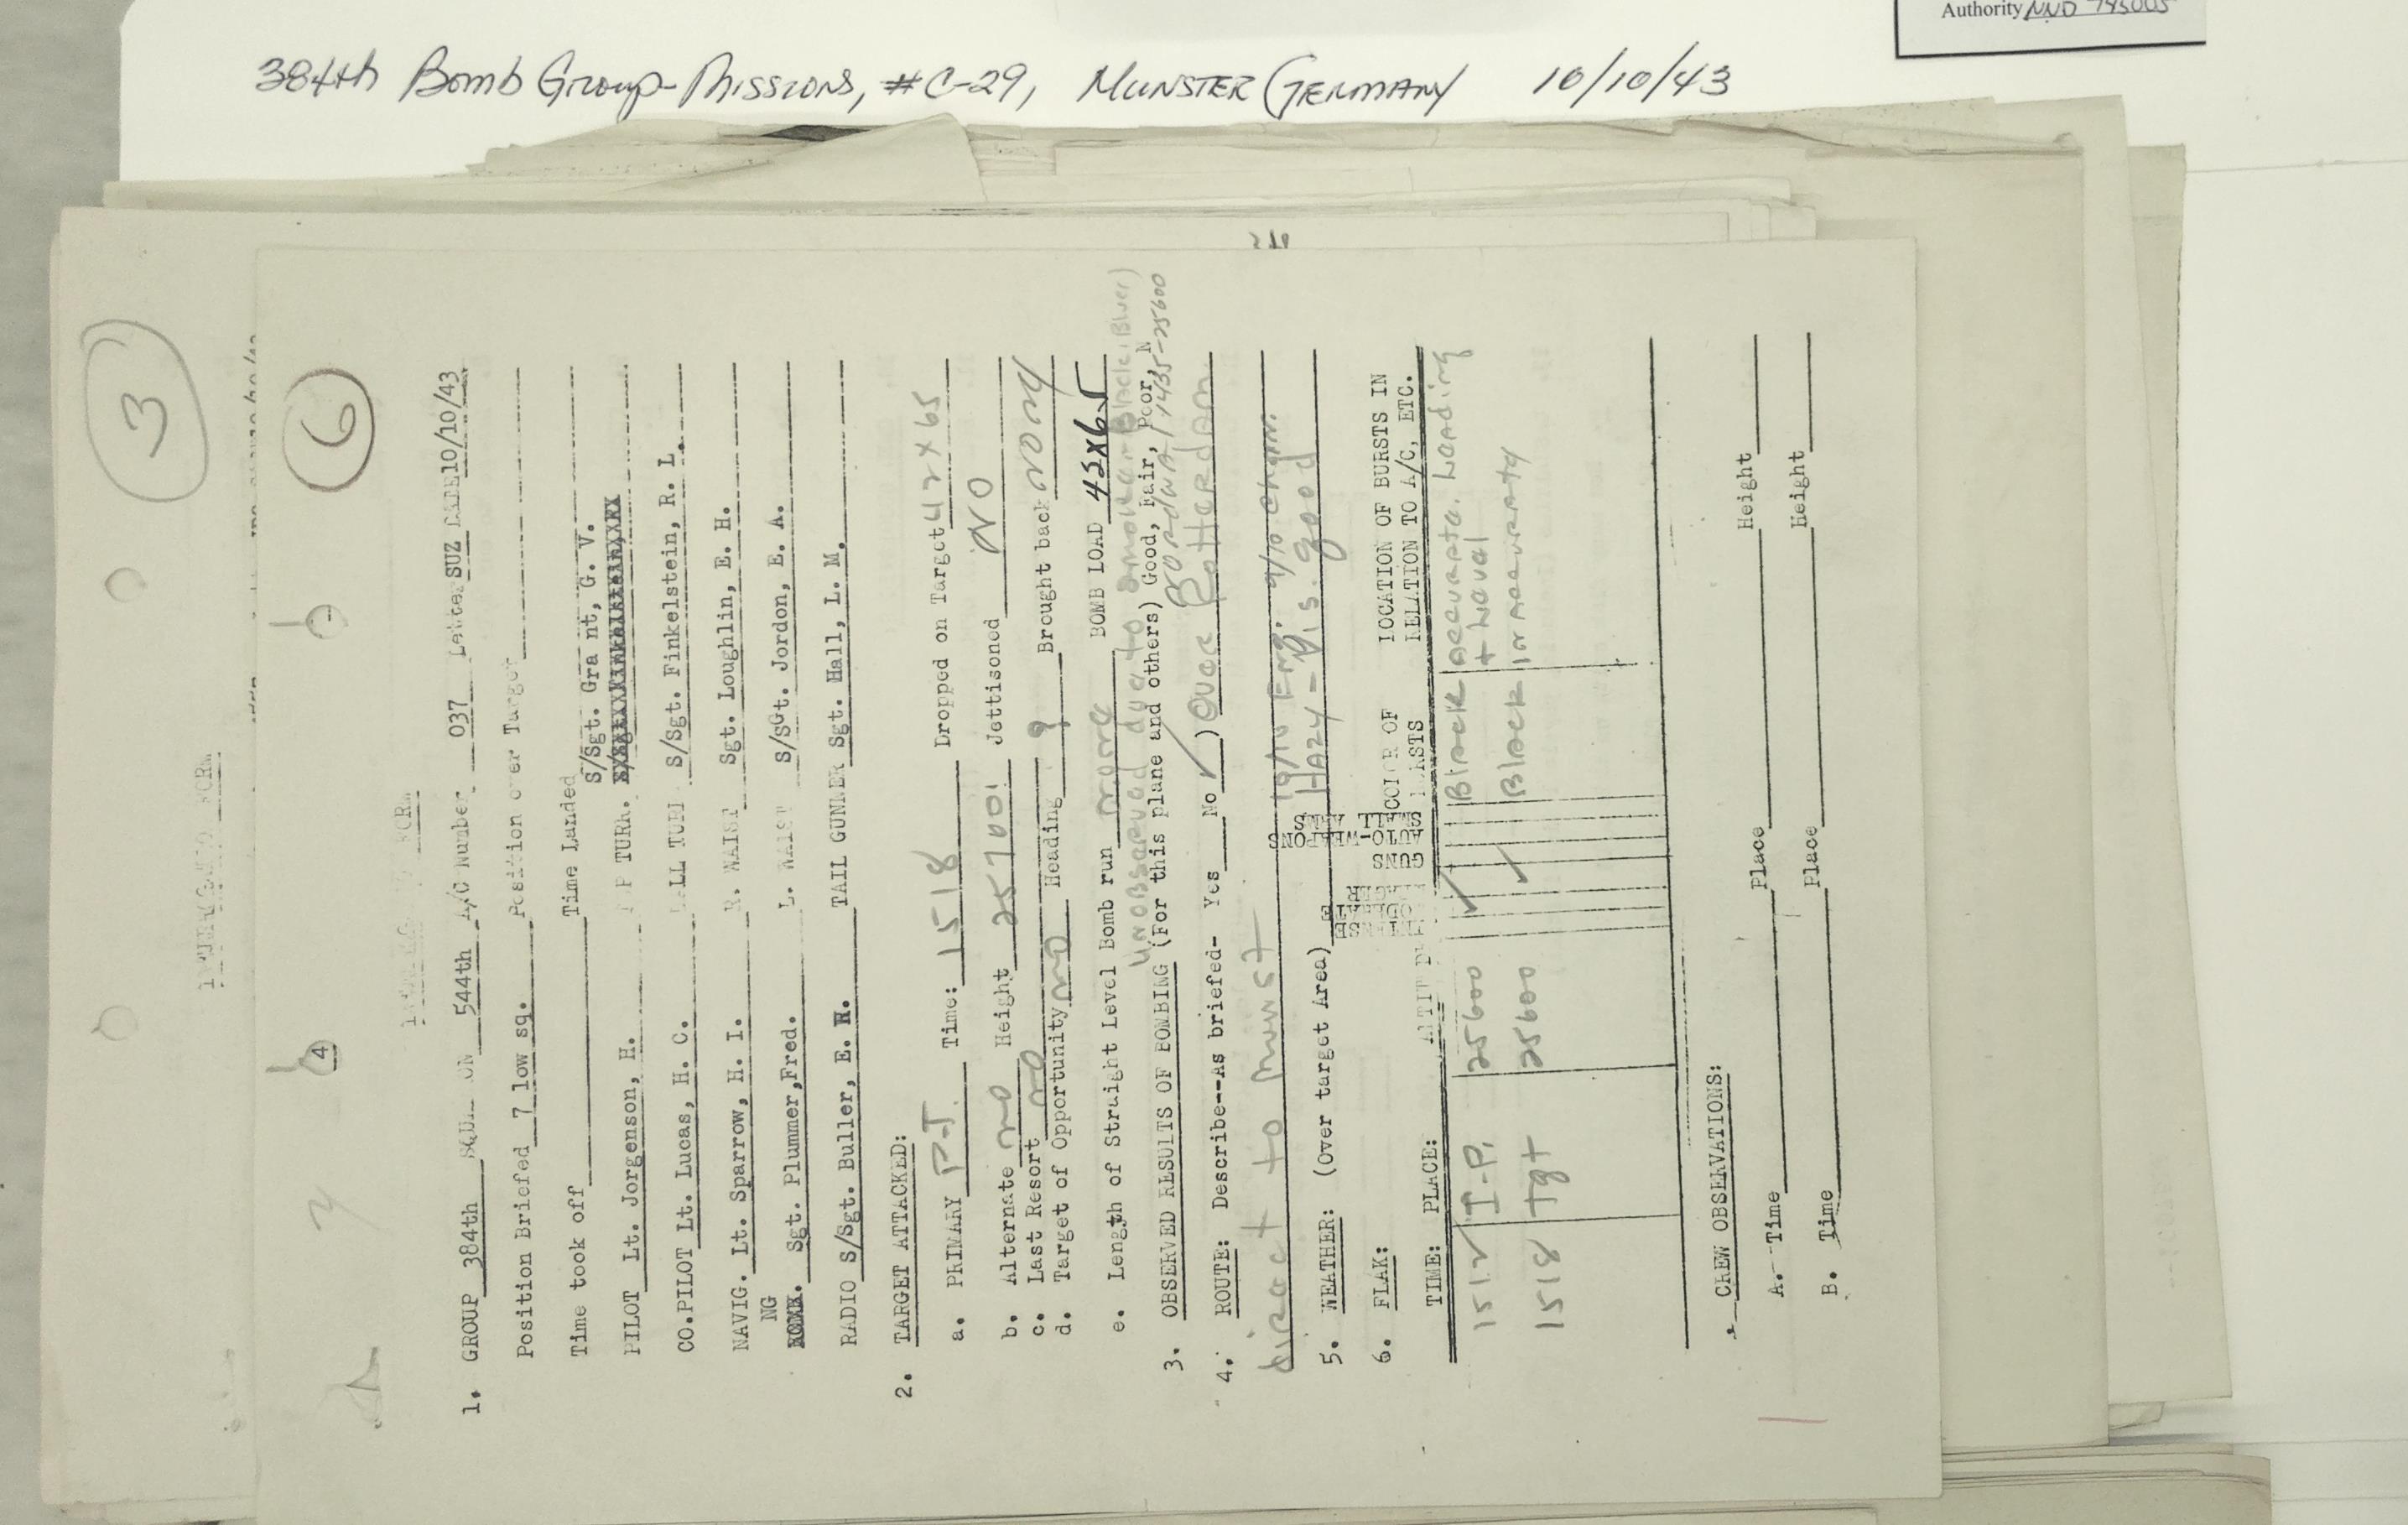 Authority NND 745005
384th Bomb Group-Missions, #C-29, Munster Germany 10/10/43
3
6
4
INTERROGATION FORM
1. GROUP 384th SQUADRON 544th A/C Number 037 Letter SUZ DATE 10/10/43
Position Briefed 7 low sq. Position over Target
Time took off Time Landed
S/Sgt. Gra nt, G. V.
PILOT Lt. Jorgenson, H. TOP TURR.
CO.PILOT Lt. Lucas, H. C. BALL TURR S/Sgt. Finkelstein, R. L.
NAVIG. Lt. Sparrow, H. I. R. WAIST Sgt. Loughlin, E. H.
NG
Sgt. Plummer,Fred. L. WAIST S/SGt. Jordon, E. A.
RADIO S/Sgt. Buller, E. R. TAIL GUNNER Sgt. Hall, L. M.
2. TARGET ATTACKED:
a. PRIMARY P-T. Time: 1518 Dropped on Target 42 x 65
b. Alternate no Height 25700' Jettisoned NO
c. Last Resort no
d. Target of Opportunity no Heading ? Brought back none
e. Length of Straight Level Bomb run none BOMB LOAD 42x65
Unobserved due to smoke
3. OBSERVED RESULTS OF BOMBING (For this plane and others) Good, Fair, Poor, N
1435-25600
4. ROUTE: Describe--As briefed- Yes No ✓ ) Over Rotterdam
direct to Munst
10/10 Eng. 9/10 Chann.
5. WEATHER: (Over target Area) Hazy - Vis. good
6. FLAK:
INTENSE
GUNS
AUTO-WEAPONS
SMALL ARMS
COLOR OF BURSTS
LOCATION OF BURSTS IN RELATION TO A/C, ETC.
TIME: PLACE:
1512 I-P. 25600 ✓ Black accurate. Leading + Level
1518 Tgt 25600 ✓ Black inaccurate
CREW OBSERVATIONS:
A. Time Place Height
B. Time Place Height